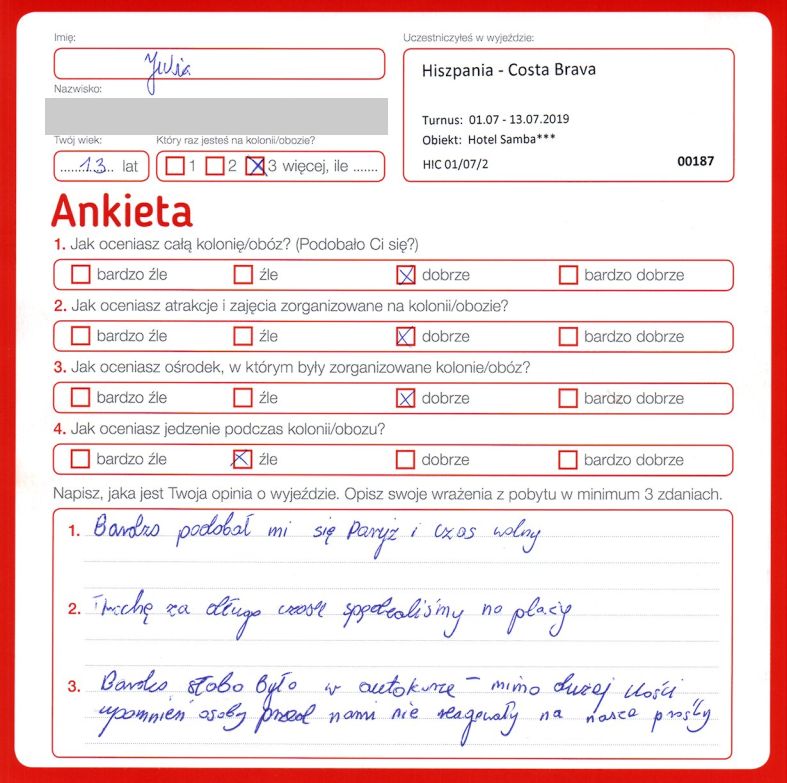 Imię:
Julia
Uczestniczyłeś w wyjeździe:
Hiszpania - Costa Brava
Nazwisko:
Turnus: 01.07 - 13.07.2019
Obiekt: Hotel Samba***
HIC 01/07/2
00187
Twój wiek:
Który raz jesteś na kolonii/obozie?
13 lat
1 2 3 więcej, ile .......
Ankieta
1. Jak oceniasz całą kolonię/obóz? (Podobało Ci się?)
bardzo źle źle dobrze bardzo dobrze
2. Jak oceniasz atrakcje i zajęcia zorganizowane na kolonii/obozie?
bardzo źle źle dobrze bardzo dobrze
3. Jak oceniasz ośrodek, w którym były zorganizowane kolonie/obóz?
bardzo źle źle dobrze bardzo dobrze
4. Jak oceniasz jedzenie podczas kolonii/obozu?
bardzo źle źle dobrze bardzo dobrze
Napisz, jaka jest Twoja opinia o wyjeździe. Opisz swoje wrażenia z pobytu w minimum 3 zdaniach.
1. Bardzo podobał mi się Paryż i czas wolny
2. Trochę za długo czasu spędzaliśmy na plaży
3. Bardzo słabo było w autokarze - mimo dużej ilości
upomnień osoby przed nami nie reagowały na nasze prośby